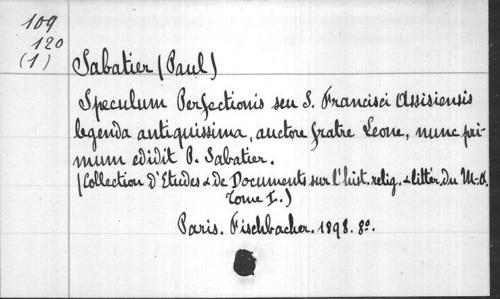 109
120
(1)
Sabatier (Paul)
Speculum Perfectionis seu S. Francisci Assisiensis
legenda antiquissima, auctore fratre Leone, nunc pri-
mum edidit P. Sabatier.
(Collection d'Etudes & de Documents sur l'hist. relig. & littér. du M.-A.
Tome I.)
Paris. Fischbacher. 1898. 8º.